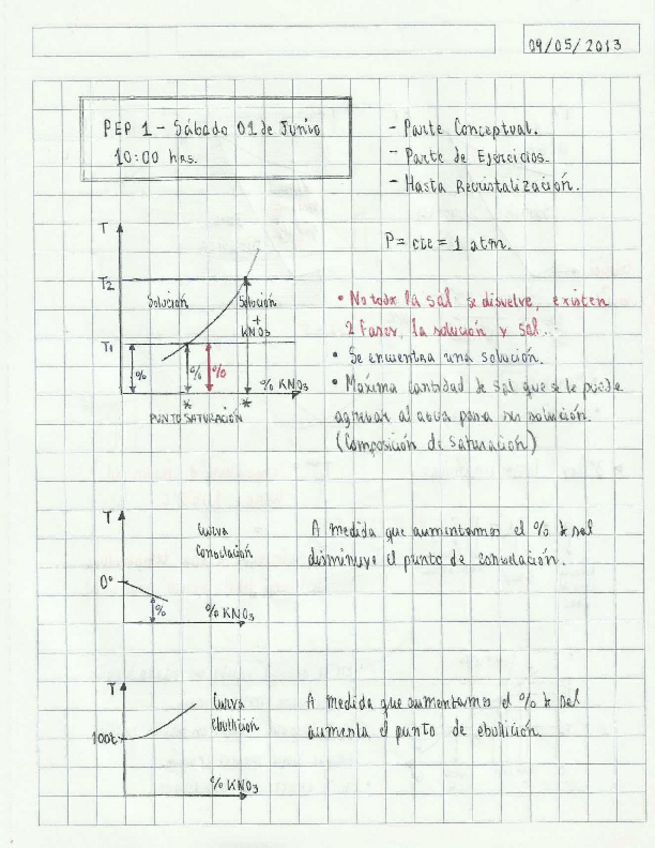 09/05/2013
PEP 1 - Sábado 01 de Junio
10:00 hrs.
- Parte Conceptual.
- Parte de Ejercicios.
- Hasta Recristalización.
P = cte = 1 atm.
T
T2
Solución
Solución
+
KNO3
T1
%
%
%
% KNO3
* *
PUNTO SATURACIÓN
• No toda la sal se disuelve, existen
2 fases, la solución y sal.
• Se encuentra una solución.
• Máxima cantidad de sal que se le puede
agregar al agua para ser solución.
(Composición de saturación)
T
Curva
Congelación
0°
%
% KNO3
A medida que aumentamos el % de sal
disminuye el punto de congelación.
T
Curva
ebullición
100°
% KNO3
A medida que aumentamos el % de sal
aumenta el punto de ebullición.